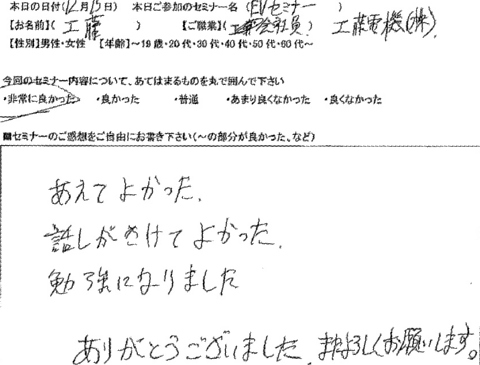 本日の日付(12月15日) 本日ご参加のセミナー名(EVセミナー)
【お名前】(工藤) 【ご職業】(会社員) 工藤電機(株)
【性別】男性・女性 【年齢】~19歳・20代・30代・40代・50代・60代~
今回のセミナー内容について、あてはまるものを丸で囲んで下さい
・非常に良かった ・良かった ・普通 ・あまり良くなかった ・良くなかった
■セミナーのご感想をご自由にお書き下さい(~の部分が良かった、など)
あえてよかった.
話しがきけてよかった.
勉強になりました
ありがとうございました. またよろしくお願いします。